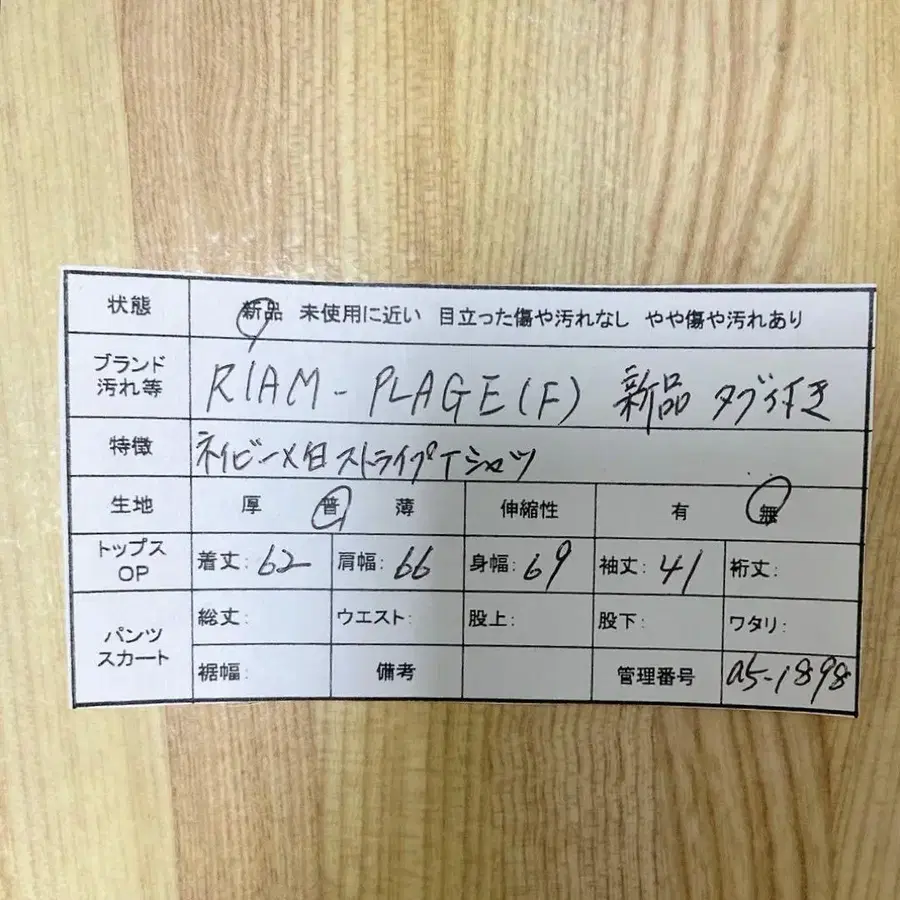 状態 新品 未使用に近い 目立った傷や汚れなし やや傷や汚れあり
ブランド
汚れ等 RIAM-PLAGE(F) 新品 タグ付き
特徴 ネイビー×白ストライプTシャツ
生地 厚 普 薄 伸縮性 有 無
トップス
OP 着丈: 62 肩幅: 66 身幅: 69 袖丈: 41 裄丈:
パンツ
スカート 総丈: ウエスト: 股上: 股下: ワタリ:
裾幅: 備考 管理番号 a5-1898